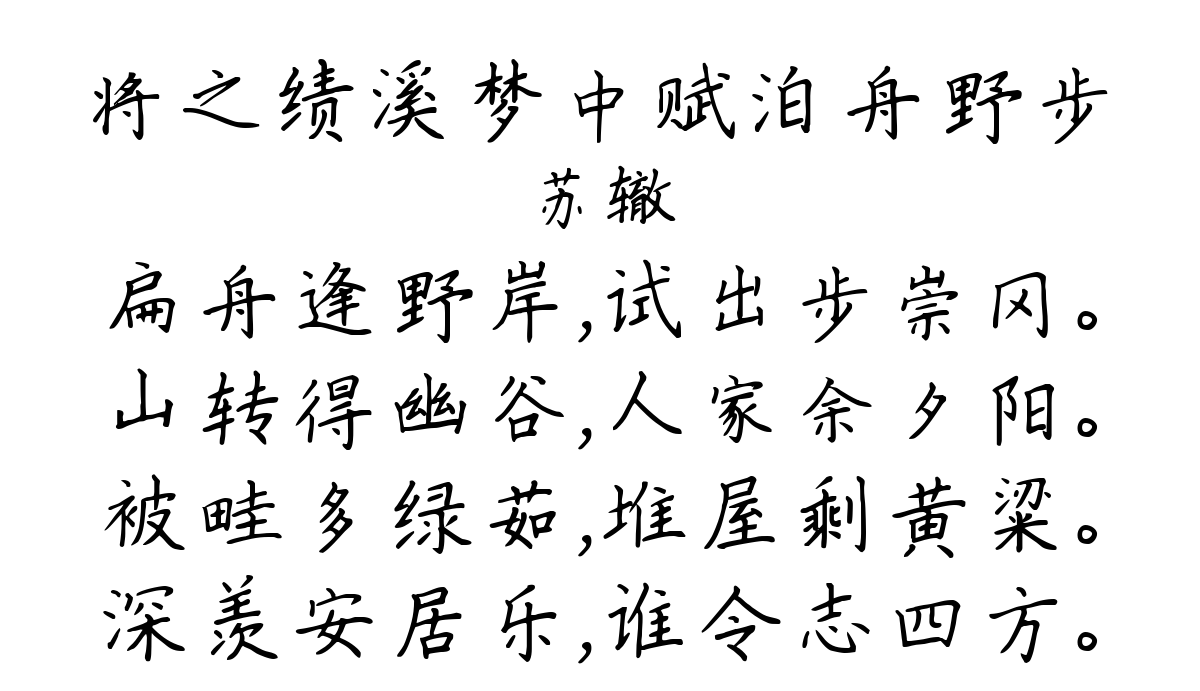 将之绩溪梦中赋泊舟野步
苏辙
扁舟逢野岸,试出步崇冈。
山转得幽谷,人家余夕阳。
被畦多绿茹,堆屋剩黄粱。
深羡安居乐,谁令志四方。